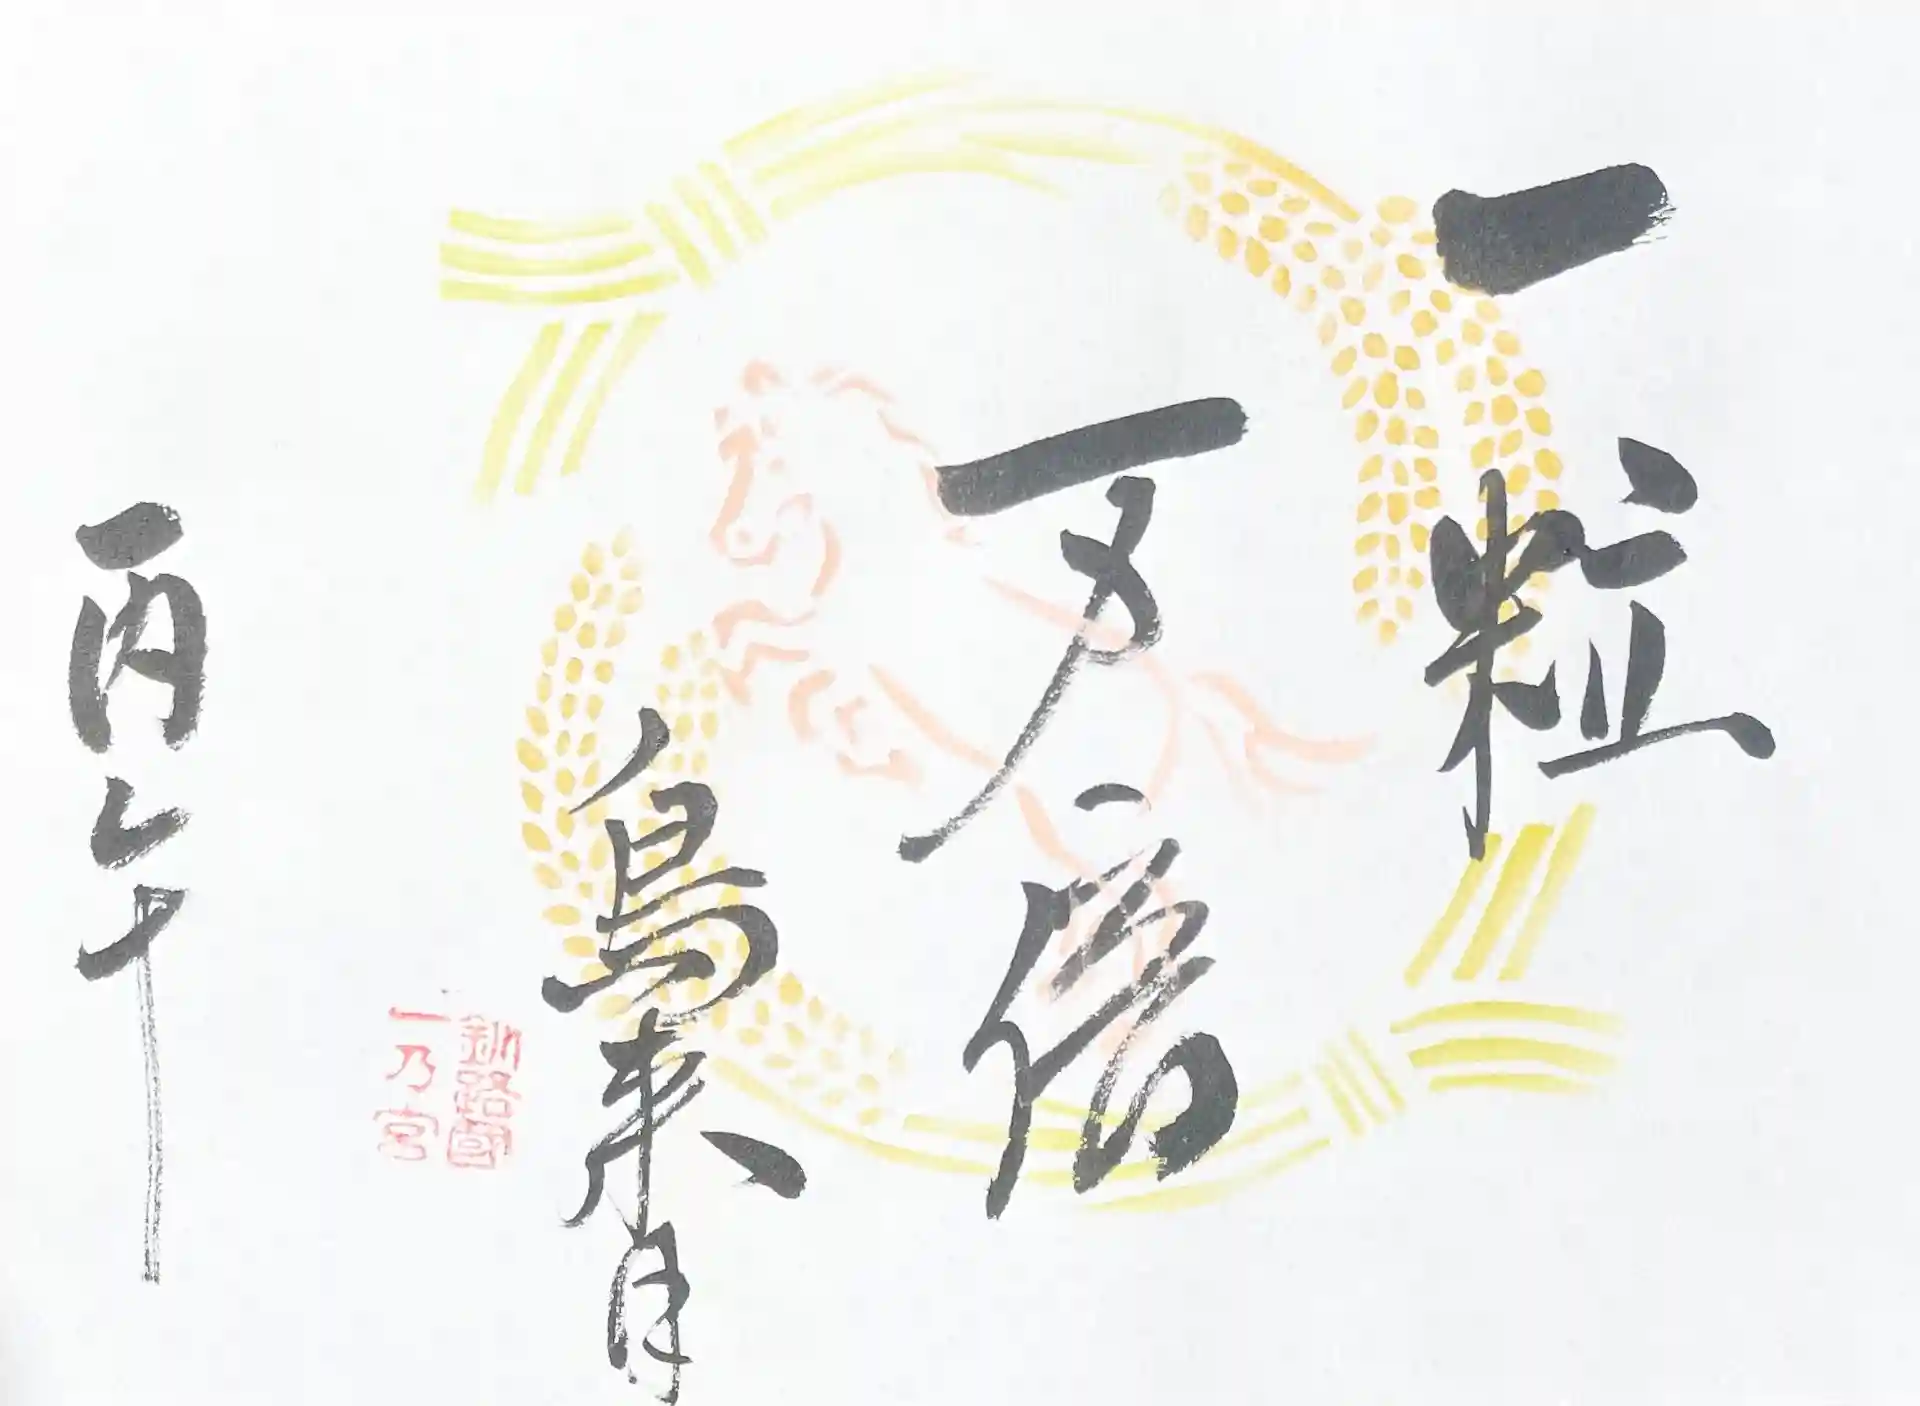 一粒
万倍
鳥来月
釧路國
一乃宮
丙午